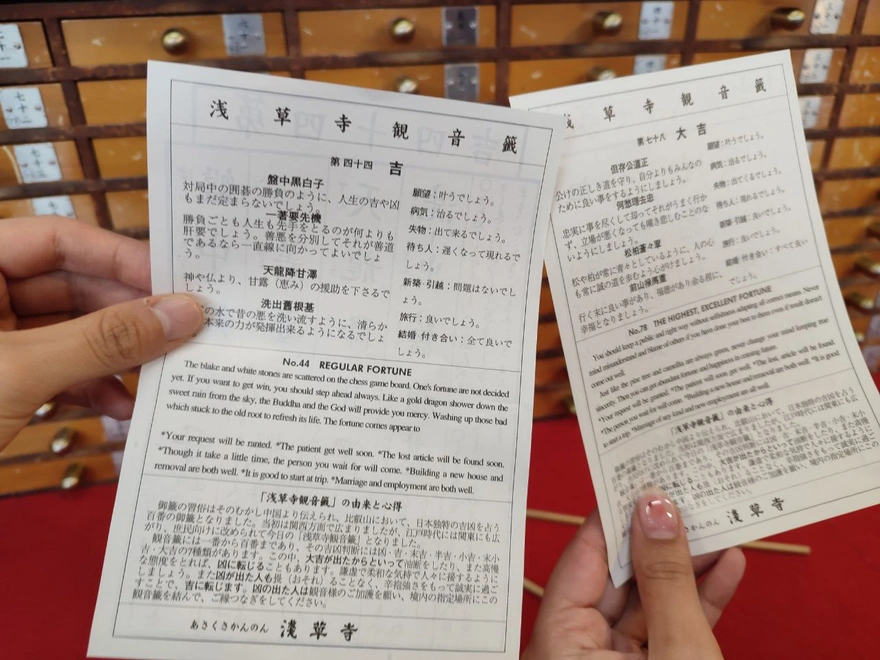 浅草寺観音籤
第四十四 吉
盤中黒白子
対局中の囲碁の勝負のように、人生の吉や凶
もまだ定まらないでしょう。
一著要先機
勝負ごとも人生も先手をとるのが何よりも
肝要でしょう。善悪を分別してそれが善道
であるなら一直線に向かってよいでしょ
う。
天龍降甘澤
神や仏より、甘露（恵み）の援助を下さるで
しょう。
洗出舊根基
の水で昔の悪を洗い流すように、清らか
本来の力が発揮出来るようになるでしょ
願望：叶うでしょう。
病気：治るでしょう。
失物：出て来るでしょう。
待ち人：遅くなって現れるで
しょう。
新築・引越：問題はないでし
ょう。
旅行：良いでしょう。
結婚・付き合い：全て良いで
しょう。
No.44 REGULAR FORTUNE
The blake and white stones are scattered on the chess game board. One's fortune are not decided
yet. If you want to get win, you should step ahead always. Like a gold dragron shower down the
sweet rain from the sky, the Buddha and the God will provide you mercy. Washing up those bad
which stuck to the old root to refresh its life. The fortune comes appear to
*Your request will be ranted. *The patient get well soon. *The lost article will be found soon.
*Though it take a little time, the person you wait for will come. *Building a new house and
removal are both well. *It is good to start at trip. *Marriage and employment are both well.
「浅草寺観音籤」の由来と心得
御籤の習俗はそのむかし中国より伝えられ、比叡山において、日本独特の吉凶を占う
百番の御籤となりました。当初は関西方面で広まりましたが、江戸時代には関東にも広
がり、庶民向けに改められて今日の「浅草寺観音籤」となりました。
観音籤には一番から百番まであり、その吉凶判断には凶・吉・末吉・半吉・小吉・末小
吉・大吉の7種類があります。この中、大吉が出たからといって油断をしたり、また高慢
な態度をとれば、凶に転じることもあります。謙虚で柔和な気持で人々に接するように
しましょう。また凶が出た人も畏（おそれ）ることなく、辛抱強さをもって誠実に過ご
すことで、吉に転じます。凶の出た人は観音様のご加護を願い、境内の指定場所にこの
観音籤を結んで、ご縁つなぎをしてください。
あさくさかんのん 浅草寺
草寺観音籤
第七十八 大吉
但存公道正
公けの正しき道を守り、自分よりもみんなの
ために良い事をするようにしましょう。
何愁理去忠
忠実に事を尽くして却ってそれがうまく行か
ず、立場が悪くなっても嘆き悲しむことのな
いようにしましょう。
松柏蒼々翠
松や柏が常に青々としているように、人の心
も常に誠の道を歩むよう心がけましょう。
前山禄馬重
行く末に良い事があり、福徳があり余る程に、
幸福となりましょう。
願望：叶うでしょう。
病気：治るでしょう。
失物：出てくるでしょう。
待ち人：現れるでしょう。
新築・引越：良いでしょう。
旅行：良いでしょう。
結婚・付き合い：すべて良い
でしょう。
No.78 THE HIGHEST, EXCELLENT FORTUNE
You should keep a public and right way without selfishness adapting all correct means. Never
mind misunderstand and blame of others if you have done your best to them even if result doesn't
come out well.
Just like the pine tree and camellia are always green, never change your mind longing true
sincerity. Then you can get abundant fortune and happiness in coming future.
*Your request will be granted. *The patient will soon get well. *The lost article will be found.
*The person you wait for will come. *Building a new house and removal are both well. *It is good
to start a trip. *Marriage of any kind and new employment are all well.
「浅草寺観音籤」の由来と心得
あさくさかんのん 浅草寺